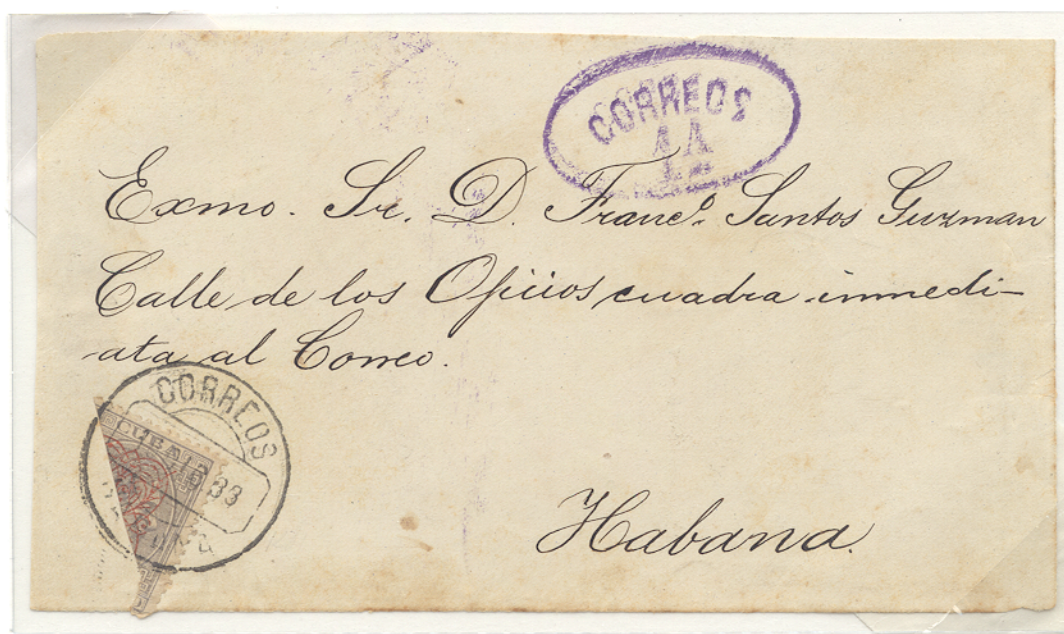 CORREOS
Exmo. Sr. D. Franco. Santos Guzman
Calle de los Oficios cuadra inmedi-
ata al Correo.
CORREOS
CUBA
83
Habana.